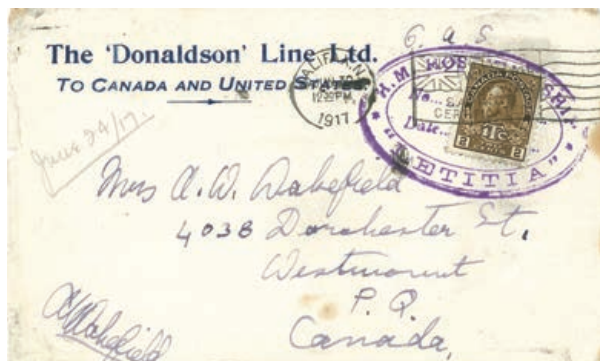 G. A. S.
The 'Donaldson' Line Ltd.
TO CANADA AND UNITED STATES.
HALIFAX, N.
PM
1917
H.M. HOSPITAL SHIP
No...
Date...
"LETITIA"
CANADA POSTAGE
2 1Tc 2
June 29/17.
Mrs A. W. Wakefield
4038 Dorchester St.
Westmount
P. Q.
Canada,
AWakefield